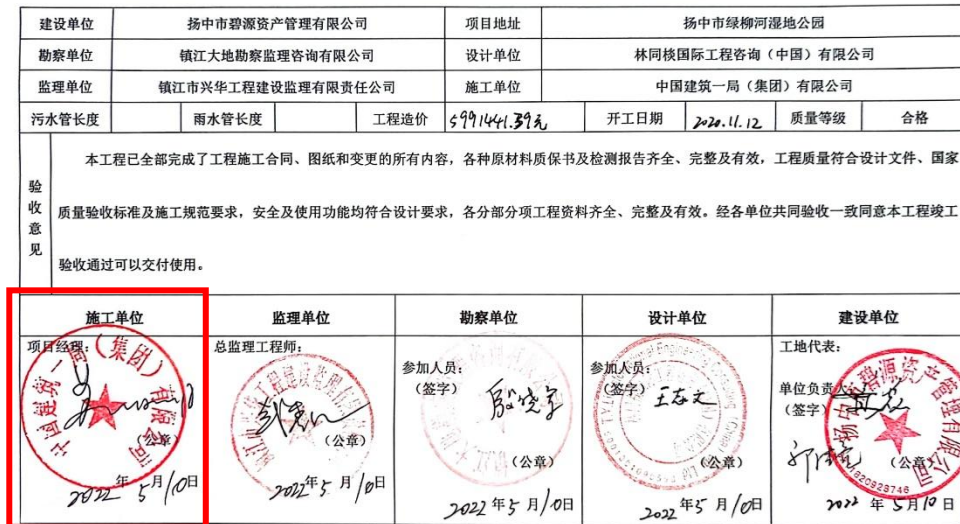 建设单位 扬中市碧源资产管理有限公司 项目地址 扬中市绿柳河湿地公园
勘察单位 镇江大地勘察监理咨询有限公司 设计单位 林同棪国际工程咨询（中国）有限公司
监理单位 镇江市兴华工程建设监理有限责任公司 施工单位 中国建筑一局（集团）有限公司
污水管长度 雨水管长度 工程造价 5991441.39元 开工日期 2020.11.12 质量等级 合格
验收意见
本工程已全部完成了工程施工合同、图纸和变更的所有内容，各种原材料质保书及检测报告齐全、完整及有效，工程质量符合设计文件、国家
质量验收标准及施工规范要求，安全及使用功能均符合设计要求，各分部分项工程资料齐全、完整及有效。经各单位共同验收一致同意本工程竣工
验收通过可以交付使用。
施工单位 监理单位 勘察单位 设计单位 建设单位
项目经理： 总监理工程师： 参加人员： 参加人员： 工地代表：
（签字） （签字） 王志文 单位负责人
（签字）
（公章） （公章） （公章） （公章） （公章）
2022年5月10日 2022年5月10日 2022年5月10日 2022年5月10日 2022年5月10日
中国建筑一局（集团）有限公司
扬中市碧源资产管理有限公司